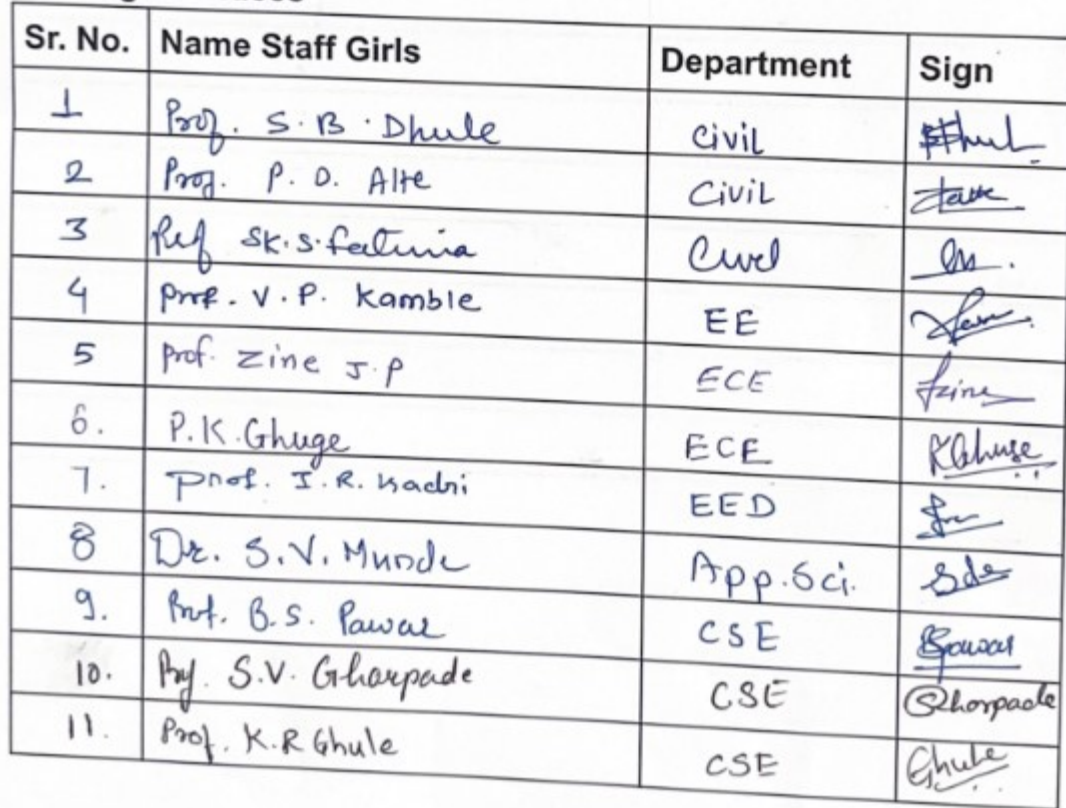 Sr. No. Name Staff Girls Department Sign
1 Prof. S.B. Dhule Civil
2 Prof. P.D. Alte Civil
3 Prof SK.S. Fatima Civil
4 Prof. V.P. Kamble EE
5 Prof. Zine J.P ECE Jzine
6. P.K. Ghuge ECE PKGhuge
7. Prof. I.R. Kadri EED
8 Dr. S.V. Munde App.Sci.
9. Prof. B.S. Pawar CSE Bpawar
10. Prof. S.V. Ghorpade CSE Ghorpade
11. Prof. K.R Ghule CSE Ghule